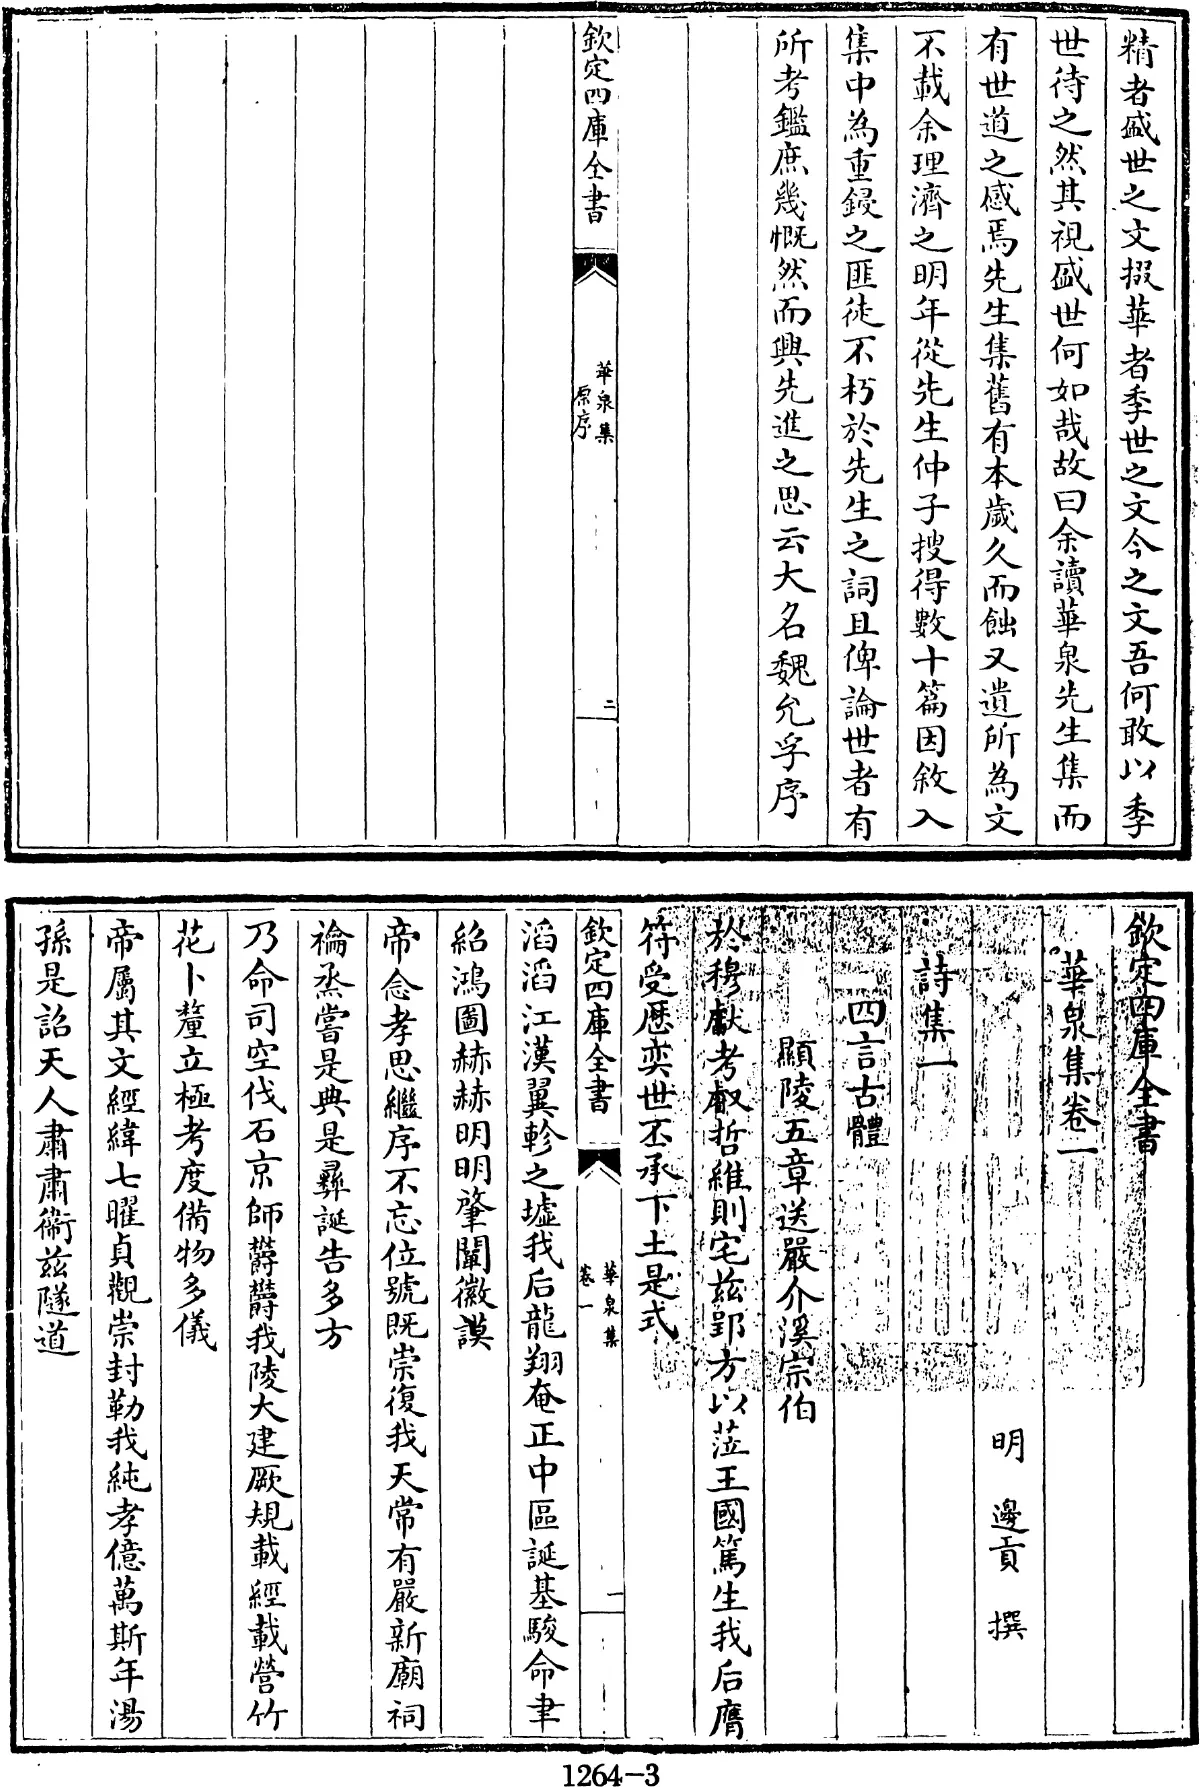 精者盛世之文掇華者季世之文今之文吾何敢以季
世待之然其視盛世何如哉故曰余讀華泉先生集而
有世道之感焉先生集舊有本歲久而蝕又遺所為文
不載余理濟之明年從先生仲子搜得數十篇因敘入
集中為重鋟之匪徒不朽於先生之詞且俾論世者有
所考鑑庶幾慨然而興先進之思云大名魏允孚序
欽定四庫全書
華泉集
原序
二
欽定四庫全書
華泉集卷一
明 邊貢 撰
詩集一
四言古體
顯陵五章送嚴介溪宗伯
於穆獻考叡哲維則宅茲郢方以蒞王國篤生我后膺
符受歷奕世丕承下土是式
欽定四庫全書
華泉集
卷一
一
滔滔江漢翼軫之墟我后龍翔奄正中區誕基駿命聿
紹鴻圖赫赫明明肇闡徽謨
帝念孝思繼序不忘位號既崇復我天常有嚴新廟祠
禴烝嘗是典是彝誕告多方
乃命司空伐石京師欝欝我陵大建厥規載經載營竹
花卜釐立極考度備物多儀
帝屬其文經緯七曜貞觀崇封勒我純孝億萬斯年湯
孫是詒天人肅肅衛茲隧道
1264-3